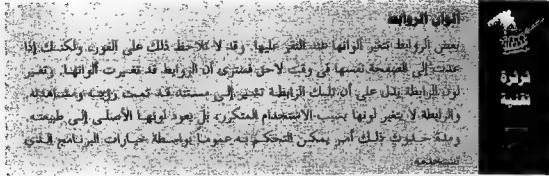 ألوان الروابط
بعض الروابط تتغير ألوانها عند النقر عليها. وقد لا تلاحظ ذلك على الفور، ولكنك إذا
عدت إلى الصفحة نفسها في وقت لاحق فسترى أن الروابط قد تغيرت ألوانها. وتغير
لون الرابطة يدل على أن تلك الرابطة تشير إلى مستند قد تمت رؤيته ومشاهدته
والرابطة لا يتغير لونها بسبب الاستخدام المتكرر، بل يعود لونها الأصلي إلى طبيعته
ومدة حدوث ذلك أمر يمكن التحكم به عموماً بواسطة خيارات البرنامج الذي
تستخدمه
ثرثرة
تقنية